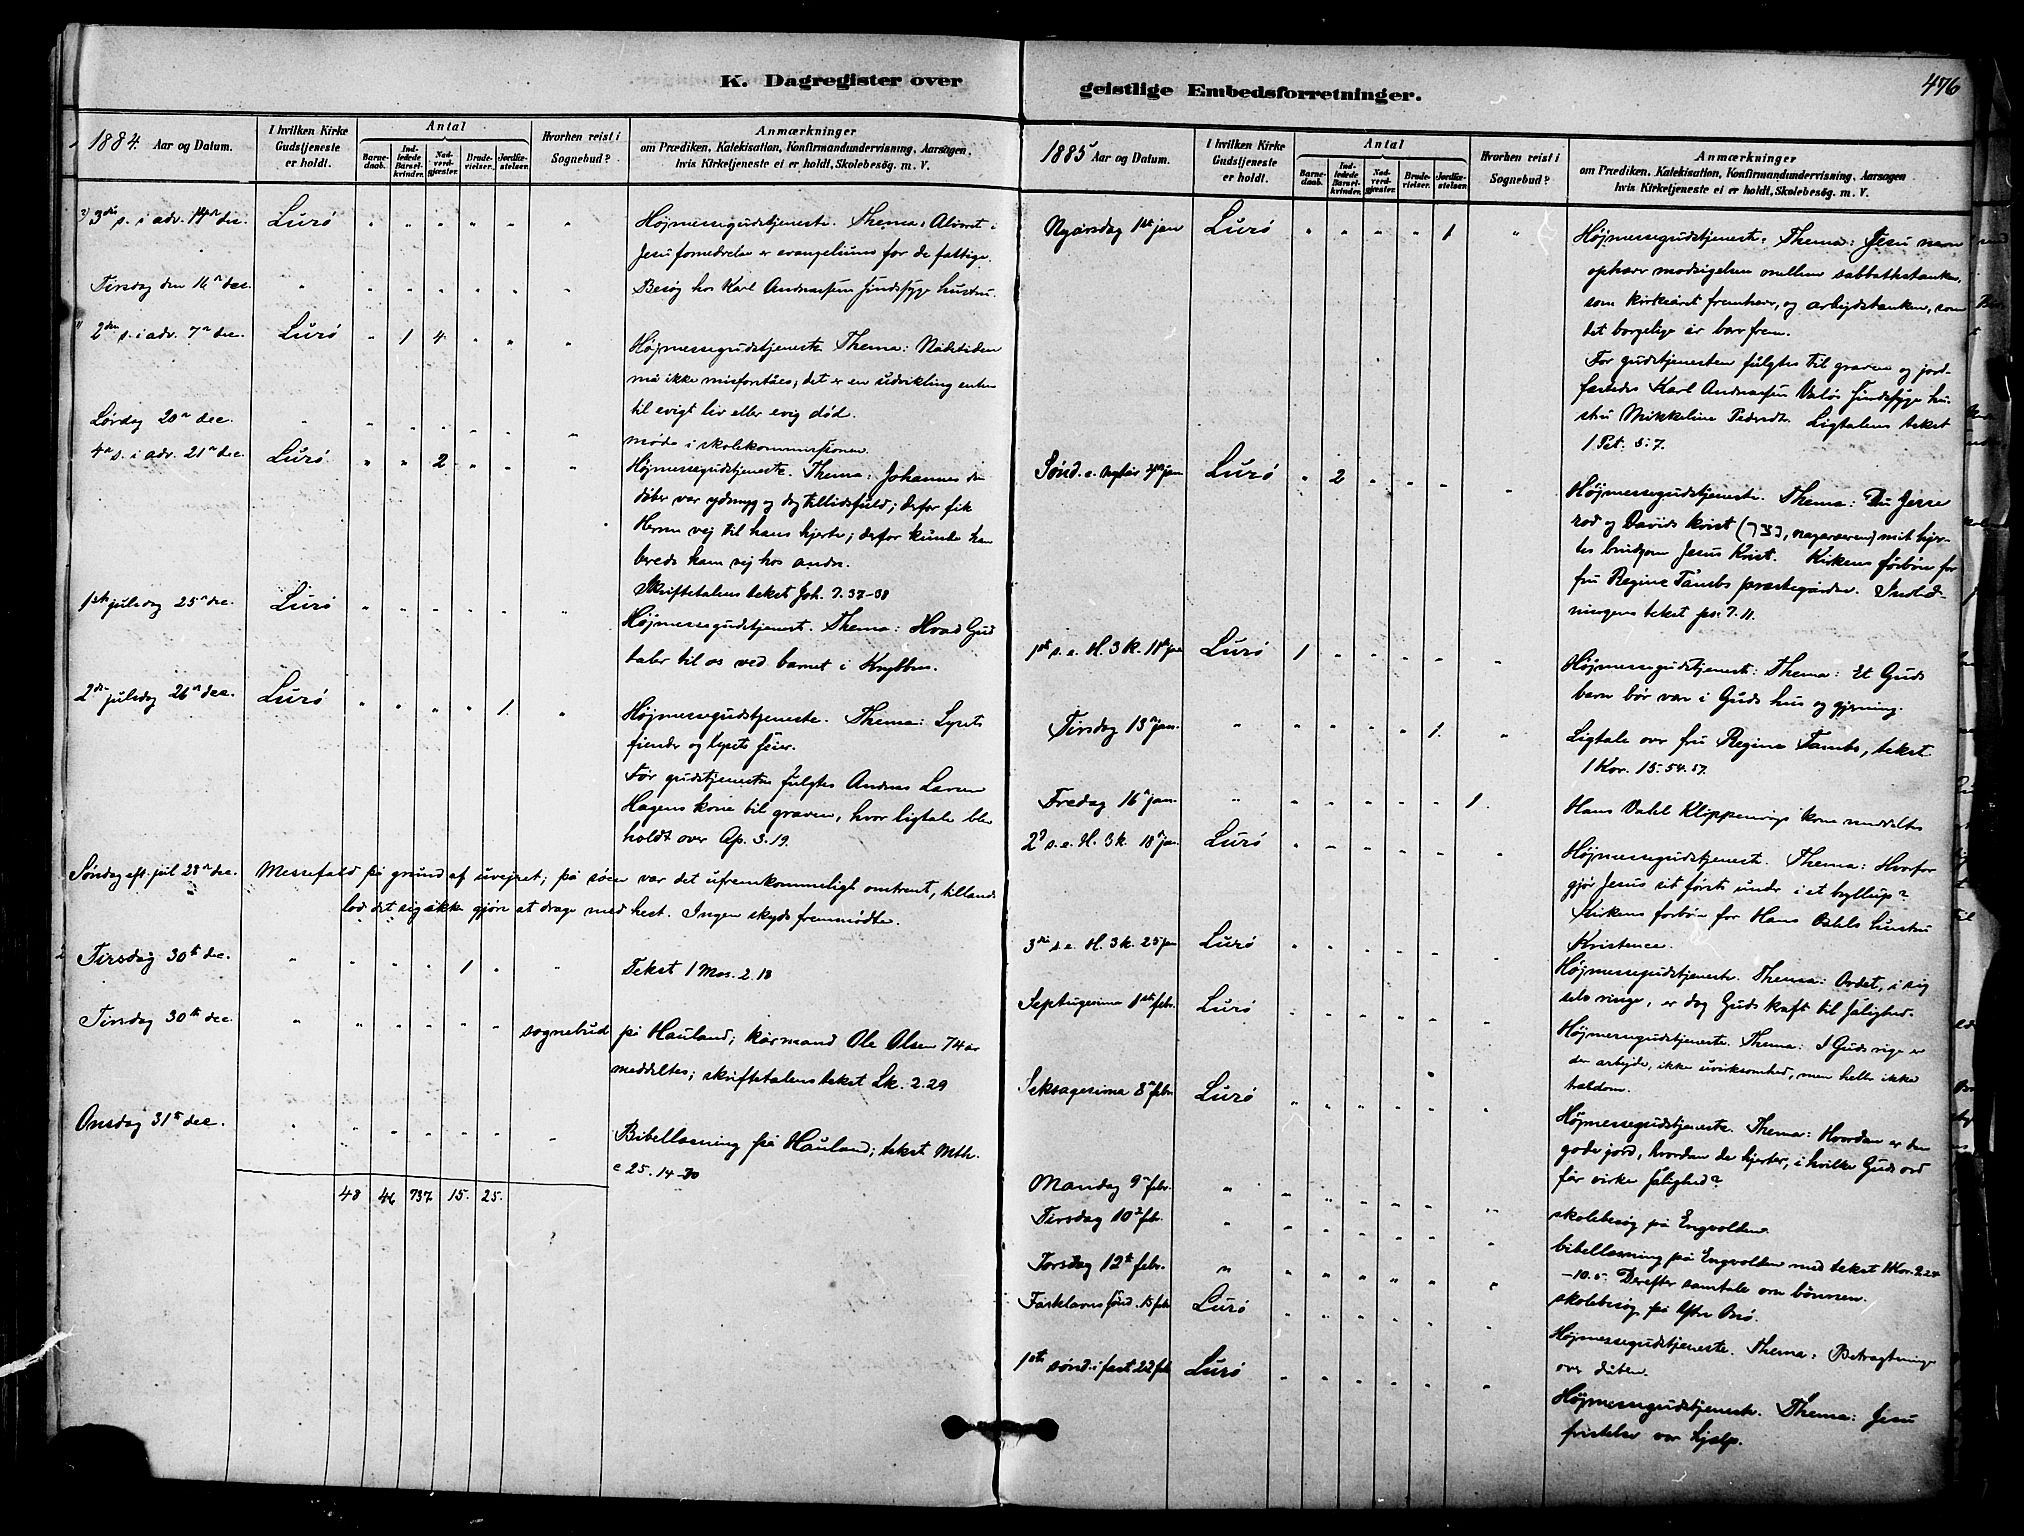 K. Dagregister over
geistlige Embedsforretninger.
476
1884. Aar og Datum.
I hvilken Kirke Gudstjeneste er holdt.
Antal
Barnedaab.
Indledede Barselkvinder.
Nadverdgjæster.
Brudevielser.
Jordfæstelser.
Hvorhen reist i Sognebud?
Anmærkninger
om Prædiken, Katekisation, Konfirmandundervisning, Aarsagen,
hvis Kirketjeneste ei er holdt, Skolebesøg. m. V.
3die s. i adv. 14de dec. Lurø " " " " " " Højmessegudstjeneste. Thema: Alvoret i
Jesu fornedrelse er evangeliums for de fattige.
Tirsdag den 16de dec. " " " " " " " Besøg hos Karl Andreassens sindssyge hustru.
2den s. i adv. 7de dec. Lurø " 1 4 " " " Højmessegudstjeneste Thema: Nådetiden
må ikke misforståes; det er en udvikling enten
til evigt liv eller evig død.
Lørdag 20de dec. " " " " " " "
møde i skolekommissionen.
4de s. i adv. 21de dec. Lurø " " 2 " " "
Højmessegudstjeneste. Thema: Johannes den
døber var ydmyg og dog tillidsfuld; derfor fik
Herren vej til hans hjerte; derfor kunde han
berede ham vej hos andre.
Skriftetalens tekst Joh. 7.37-38
1ste juledag 25de dec. Lurø " " " " " "
Højmessegudstjenest. Thema: Hvad Gud
taler til os ved barnet i Krybben.
2den juledag 26de dec. Lurø " " " " 1. "
Højmessegudstjeneste. Thema: Lysets
fiender og lysets seier.
Før gudstjenesten fulgtes Andreas Larsen
Hagens kone til graven, hvor ligtale blev
holdt over Ap. 3.19.
Søndag eft. jul 28de dec. Messefald på grund af uvejret; på søen var det ufremkommeligt omtrent, tillands
lod det sig ikke gjøre at drage med hest. Ingen skyds fremmødte.
Tirsdag 30te dec. " " " " 1 " " Tekst 1 Mos. 2.18
Tirsdag 30te dec. " " " " " " sognebud på Hauland; kårmand Ole Olsen 74 år
meddeltes; skriftetalens tekst Lk. 2.29
Onsdag 31te dec. " " " " " " " Bibellæsning på Hauland; tekst Mth.
c 25.14-30
48 46 737 15. 25.
1885 Aar og Datum.
I hvilken Kirke Gudstjeneste er holdt.
Antal
Barnedaab.
Indledede Barselkvinder.
Nadverdgjæster.
Brudevielser.
Jordfæstelser.
Hvorhen reist i Sognebud?
Anmærkninger
om Prædiken, Katekisation, Konfirmandundervisning, Aarsagen
hvis Kirketjeneste ei er holdt, Skolebesøg. m. V.
Nyårsdag 1ste jan Lurø " " " " 1 " Højmessegudstjeneste. Thema: Jesu navn
ophæver modsigelsen mellem sabbathstanken,
som kirkeåret fremhæver, og arbejdstanken, som
det borgelige år bær frem.
Før gudstjenesten fulgtes til graven og jord-
fæstedes Karl Andreassen Valøs sindssyge hu-
stru Mikkeline Pedersdt. Ligtalens tekst
1 Pet. 5:7.
Sønd. e. nytår 4de jan Lurø " 2 " " " "
Højmessegudstjeneste. Thema: Du Jesse
rod og Davids kvist (נצר, nazaræeren) mit hjer-
tes brudgom Jesus Krist. Kirkens forbøn for
fru Regine Tambs præstegården. Indled-
ningens tekst ps. 7.11.
1ste s. e. H. 3 K. 11te jan Lurø 1 " " " " "
Højmessegudstjeneste: Thema: Et Guds
barn bør være i Guds hus og gjerning.
Tirsdag 13de jan. " " " " " 1. "
Ligtale over fru Regine Tambs, tekst
1 Kor. 15. 54. 57.
Fredag 16de jan. " " " " " " 1.
Hans Dahl Kløppenvigs kone meddeltes
2den s. e. H. 3 K. 18de jan. Lurø " " " " " "
Højmessegudstjeneste. Thema: Hvorfor
gjør Jesus sit første under i et bryllup?
Kirkens forbøn for Hans Dahls hustru
Kristence.
3die s. e. H. 3 K. 25 jan Lurø " " " " " "
Højmessegudstjeneste. Thema: Ordet, i sig
selv ringe, er dog Guds kraft til salighed.
Septuagesima 1ste febr. Lurø " " " " " "
Højmessegudstjeneste. Thema: I Guds rige er
der arbejde, ikke uvirksomhed, men heller ikke
trældom.
Seksagesima 8de febr. Lurø " " " " " "
Højmessegudstjeneste. Thema: Hvordan er den
gode jord, hvordan de hjerter, i hvilke Guds ord
får virke salighed?
Mandag 9de febr. " " " " " " "
skolebesøg på Engvolden.
Tirsdag 10de feb. " " " " " " "
bibellæsning på Engvolden med tekst 1 Kor. 9.24
-10.5. Derefter samtale om bønnen.
Torsdag 12te febr. " " " " " " "
skolebesøg på Ytre
Fastelavns sønd. 15 feb. Lurø " " " " " "
Højmessegudstjeneste. Thema: Betragtninger
over dåben.
1ste sønd. i fast 22 feb. Lurø " " " " " "
Højmessegudstjeneste. Thema: Jesu
fristelse vor hjælp.